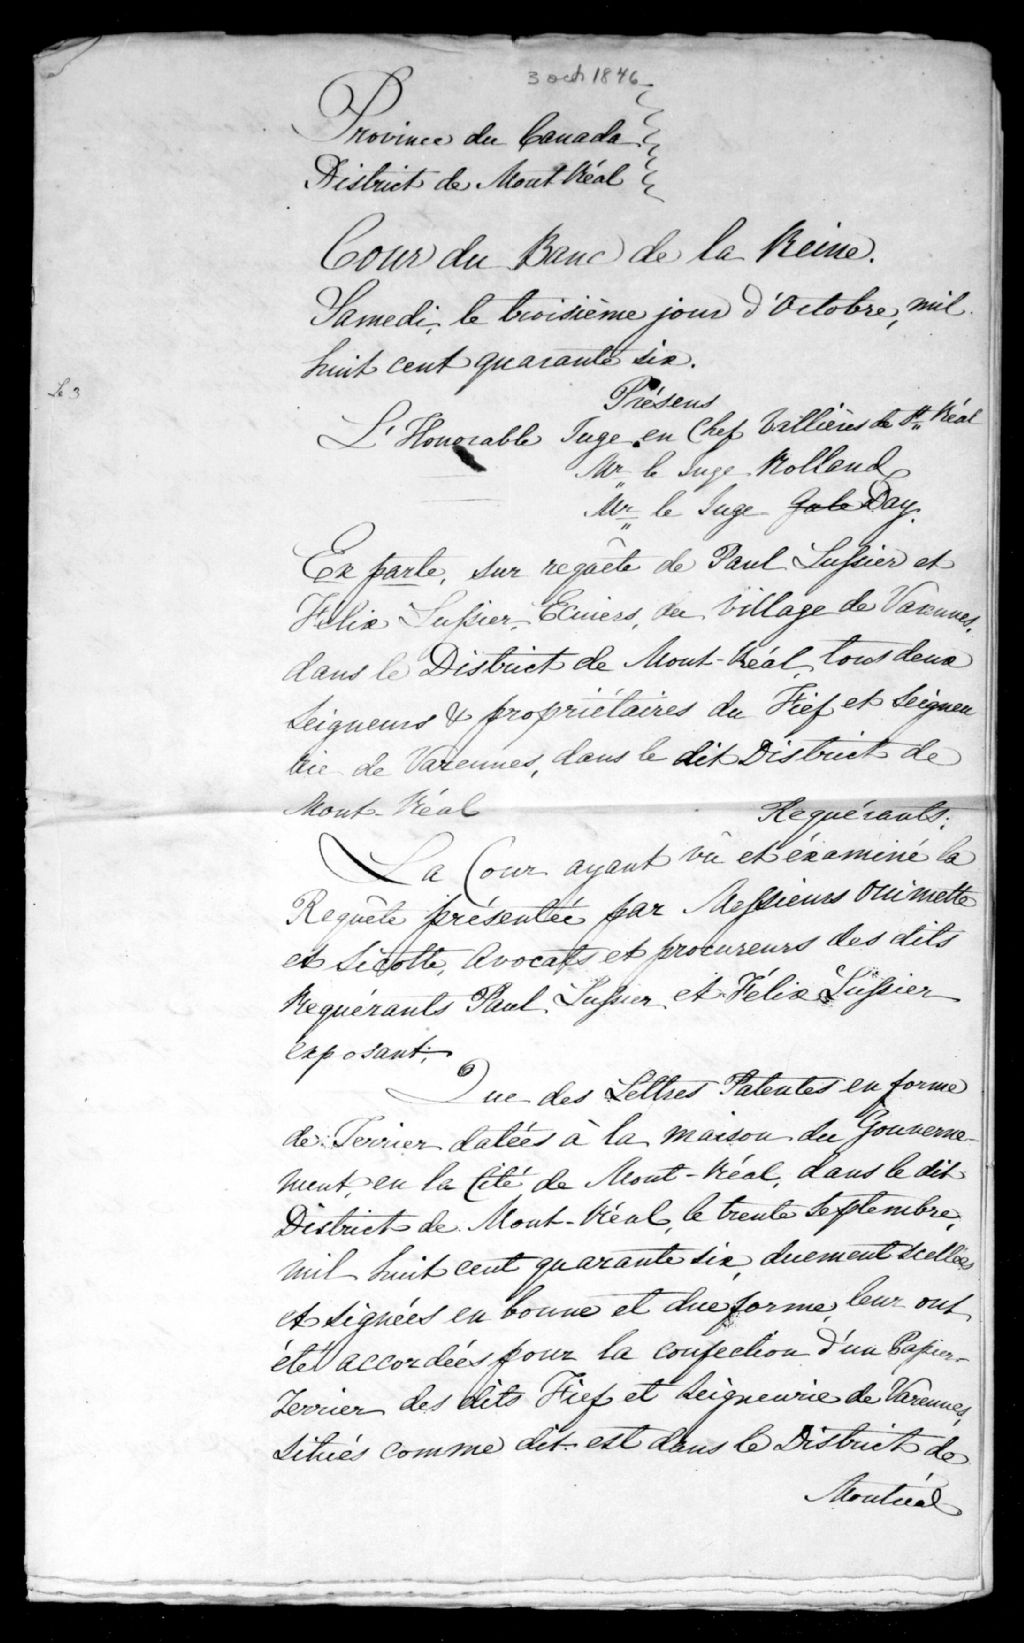 3 oct 1846
Province du Canada
District de Mont Réal
Cour du Banc de la Reine.
Samedi, le troisième jour d'Octobre, mil
huit cent quarante six.
Le 3
Présens
L'Honorable Juge en Chef Vallières de St Réal
Mr le Juge Rolland
Mr le Juge Gale Day.
Ex parte, sur requête de Paul Lussier et
Félix Lussier, Ecuiers, du Village de Varennes,
dans le District de Mont-Réal, tous deux
Seigneurs & propriétaires du Fief et Seigneu
rie de Varennes, dans le dit District de
Mont-Réal
Requérants.
La Cour ayant vû et éxaminé la
Requête présentée par Messieurs Ouimette
et Sicotte, Avocats et procureurs des dits
Requérants Paul Lussier et Félix Lussier
exposant;
Que des Lettres Patentes en forme
de Terrier datées à la maison du Gouverne-
ment, en la Cité de Mont-Réal, dans le dit
District de Mont-Réal, le trente Septembre,
mil huit cent quarante six, duement scellées
et signées en bonne et due forme, leur ont
été accordées pour la confection d'un Papier-
Terrier des dits Fief et Seigneurie de Varennes,
Situés comme dit est dans le District de
Montréal